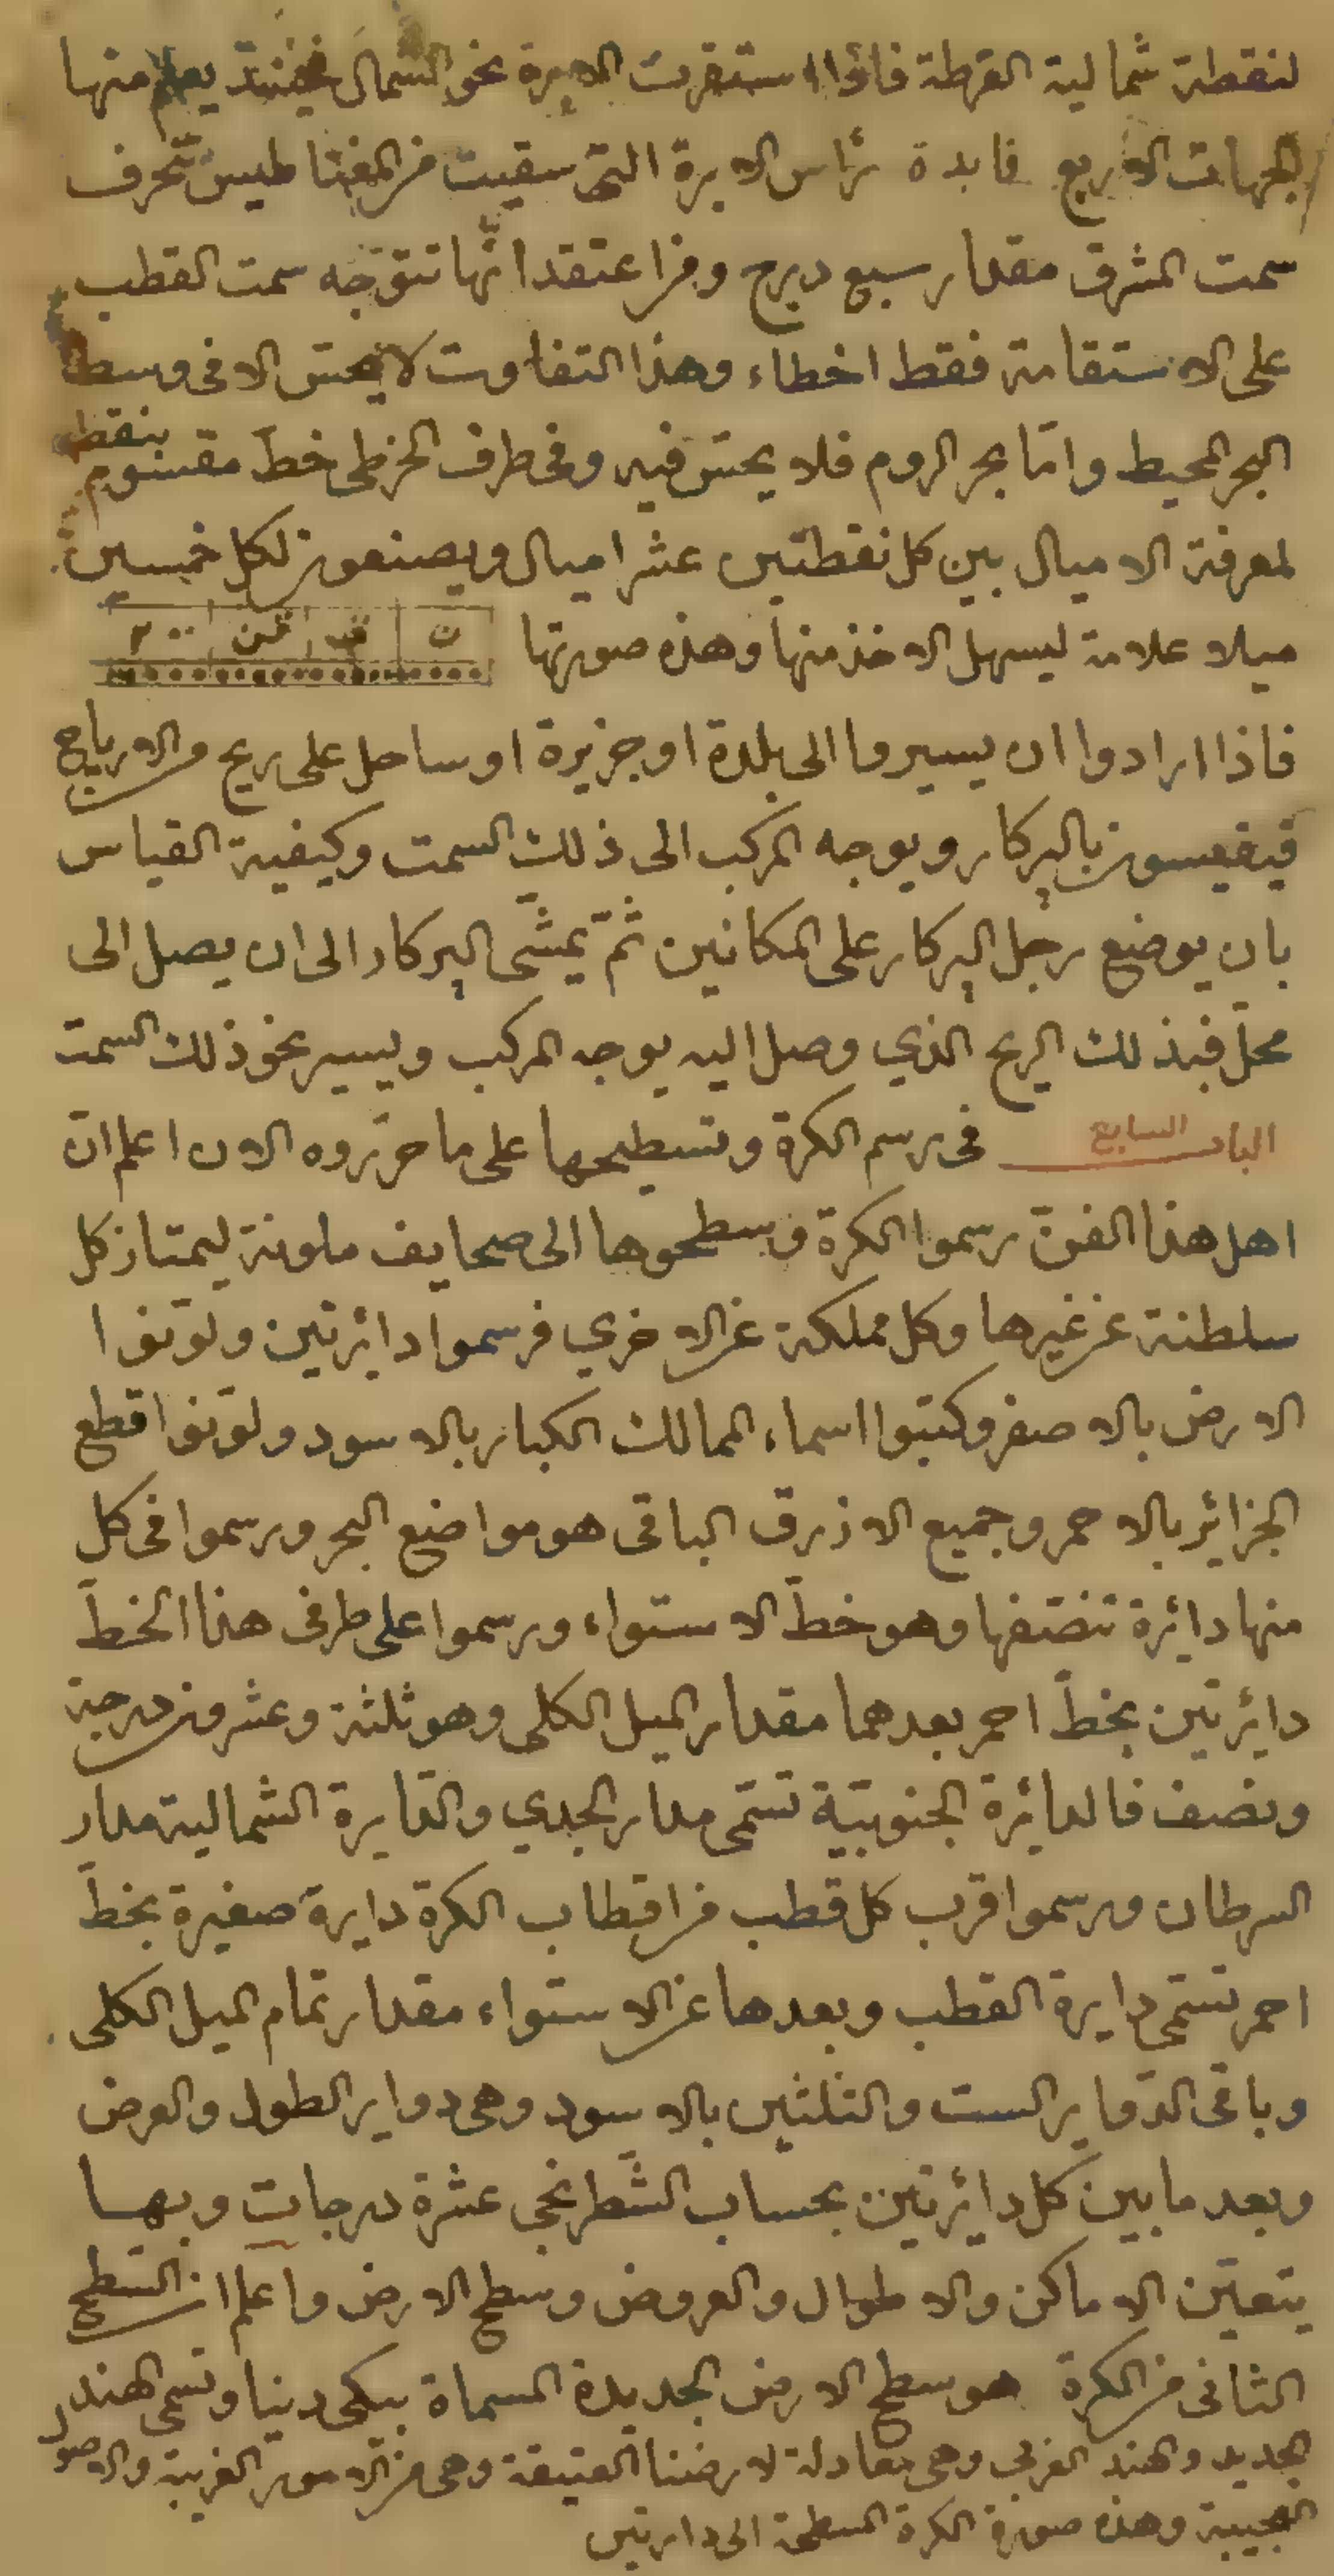 لنقطة شمالية القرطة فاذا استقرت الابرة نحو الشمال فحينئذ يعلم منها
الجهات الاربع فايدة رأس الابرة التى سقيت من المغناطيس تنحرف
سمت المشرق مقدار سبع درج ومن اعتقد انّها تتوجّه سمت القطب
على الاستقامة فقط اخطاء وهذا التفاوت لا يحسّ الا فى وسط
البحر المحيط وامّا بحر الروم فلا يحسّ فيه وفى طرف الخرطى خطّ مقسوم بنقط
لمعرفة الاميال بين كل نقطتين عشر اميال ويصنعون لكل خمسين
ميلا علامة ليسهل الاخذ منها وهذه صورتها
ن ق قن ٢٠٠
فاذا ارادوا ان يسيروا الى بلدة او جزيرة او ساحل على ريح والارياح
فيقيسون بالپركار ويوجه المركب الى ذلك السمت وكيفية القياس
بان يوضع رجل الپركار على المكانين ثمّ يمشّى الپركار الى ان يصل الى
محلّ فبذلك الريح الذي وصل اليه يوجه المركب ويسير نحو ذلك السمت
الباب السابع فى رسم الكرة وتسطيحها على ما حرّروه الان اعلم انّ
اهل هذا الفنّ رسموا الكرة وسطحوها الى صحايف ملونة ليمتاز كل
سلطنة عن غيرها وكل مملكة عن الاخري فرسموا دائرتين ولوّنوا
الارض بالاصفر وكتبوا اسماء الممالك الكبار بالاسود ولوّنوا قطع
الجزائر بالاحمر وجميع الازرق الباقى هو مواضع البحر ورسموا فى كل
منها دائرة تنصّفها وهو خطّ الاستواء ورسموا على طرفى هذا الخطّ
دائرتين بخطّ احمر بعدهما مقدار الميل الكلى وهو ثلثة وعشرون درجة
ونصف فالدائرة الجنوبيّة تسمّى مدار الجدي والدّايرة الشمالية مدار
السرطان ورسموا قرب كل قطب من اقطاب الكرة دايرة صغيرة بخطّ
احمر تسمّى دايرة القطب وبعدها عن الاستواء مقدار تمام الميل الكلى
وباقى الدّواير الست والثلثين بالاسود وهى دواير الطول والعرض
وبعد ما بين كل دائرتين بحساب الشّطرنجى عشرة درجات وبها
يتعيّن الاماكن والاطوال والعروض وسطح الارض واعلم ان السّطح
الثانى من الكرة هو سطح الارض الجديدة المسماة بيكى دينا وتسمى الهند
الجديد وهند الغربى وهى معادلة لارضنا العتيقة وهى من الامور الغريبة والاصول
العجيبة وهذه صورة الكرة المسطحة الى دايرتين